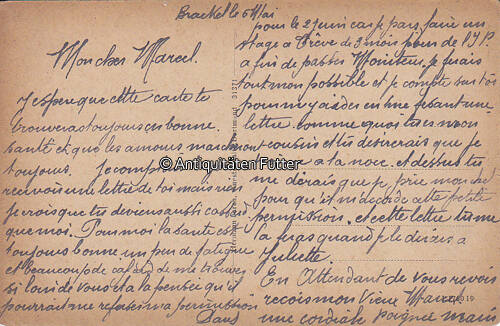 Brackel le 5 Mai
Mon cher Marcel.
J'espère que cette carte te
trouvera toujours en bonne
santé et que les amours marchent
toujours. Je comptais
recevoir une lettre de toi mais rien
je crois que tu deviens aussi
que moi. Pour moi la santé est
toujours bonne un peu de fatigue
et beaucoup de cafard de me trouver
si loin de vous et a la pensée qu'il
pourrait me refuser ma permission
Dans
pour le 2 juin car je pars faire un
stage a Trêve de 3 mois pour de l'I.P.
afin de passer Moniteur, je ferais
tout mon possible et je compte sur toi
pour m'y aider en me faisant une
lettre comme quoi tu es mon
cousin et tu désirerais que je
a la noce. et dessus tu
me dirais que je prie mon chef
pour qu'il m'accorde cette petite
permission. et cette lettre tu me
la feras quand je le dirais a
Juliette.
En Attendant de vous revoir
recois mon Vieux Marcel
une cordiale poignée main
31271
© Antiquitäten Futter
19